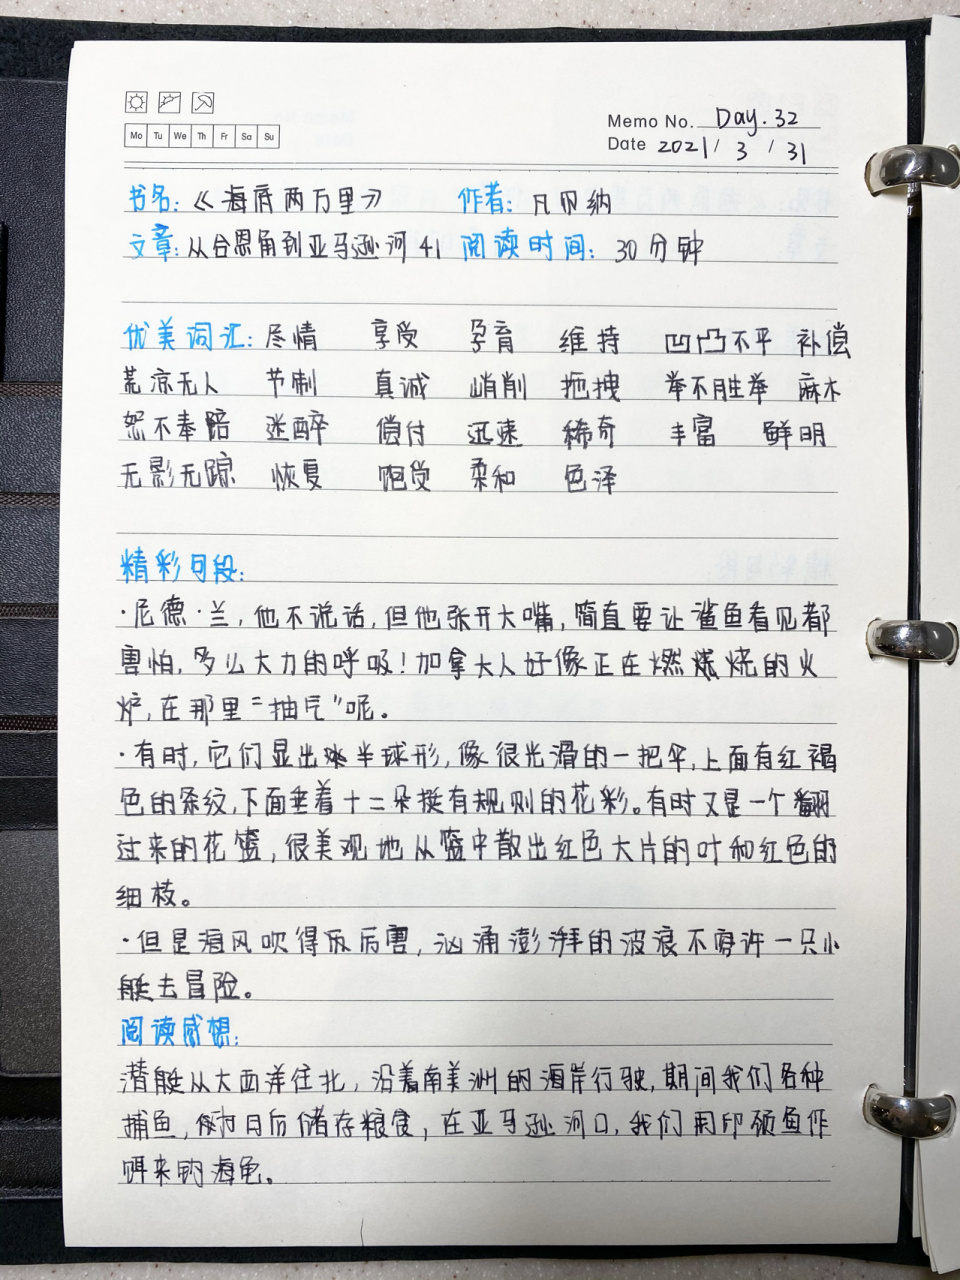 Mo Tu We Th Fr Sa Su
Memo No. Day.32
Date 2021 / 3 / 31
书名:《海底两万里》 作者:凡尔纳
文章:从合恩角到亚马逊河41 阅读时间:30分钟
优美词汇:尽情 享受 孕育 维持 凹凸不平 补偿
荒凉无人 节制 真诚 峭削 拖拽 举不胜举 麻木
恕不奉陪 迷醉 偿付 迅速 稀奇 丰富 鲜明
无影无踪 恢复 饱受 柔和 色泽
精彩句段:
·尼德·兰,他不说话,但他张开大嘴,简直要让鲨鱼看见都
害怕,多么大力的呼吸!加拿大人好像正在燃烧的火
炉,在那里“抽气”呢。
·有时,它们显出半球形,像很光滑的一把伞,上面有红褐
色的条纹,下面垂着十二朵挺有规则的花彩。有时又是一个翻
过来的花篮,很美观地从篮中散出红色大片的叶和红色的
细枝。
·但是海风吹得很厉害,汹涌澎湃的波浪不容许一只小
艇去冒险。
阅读感想:
潜艇从大西洋往北,沿着南美洲的海岸行驶,期间我们各种
捕鱼,日后储存粮食,在亚马逊河口,我们用印颈鱼作
饵来钓海龟。